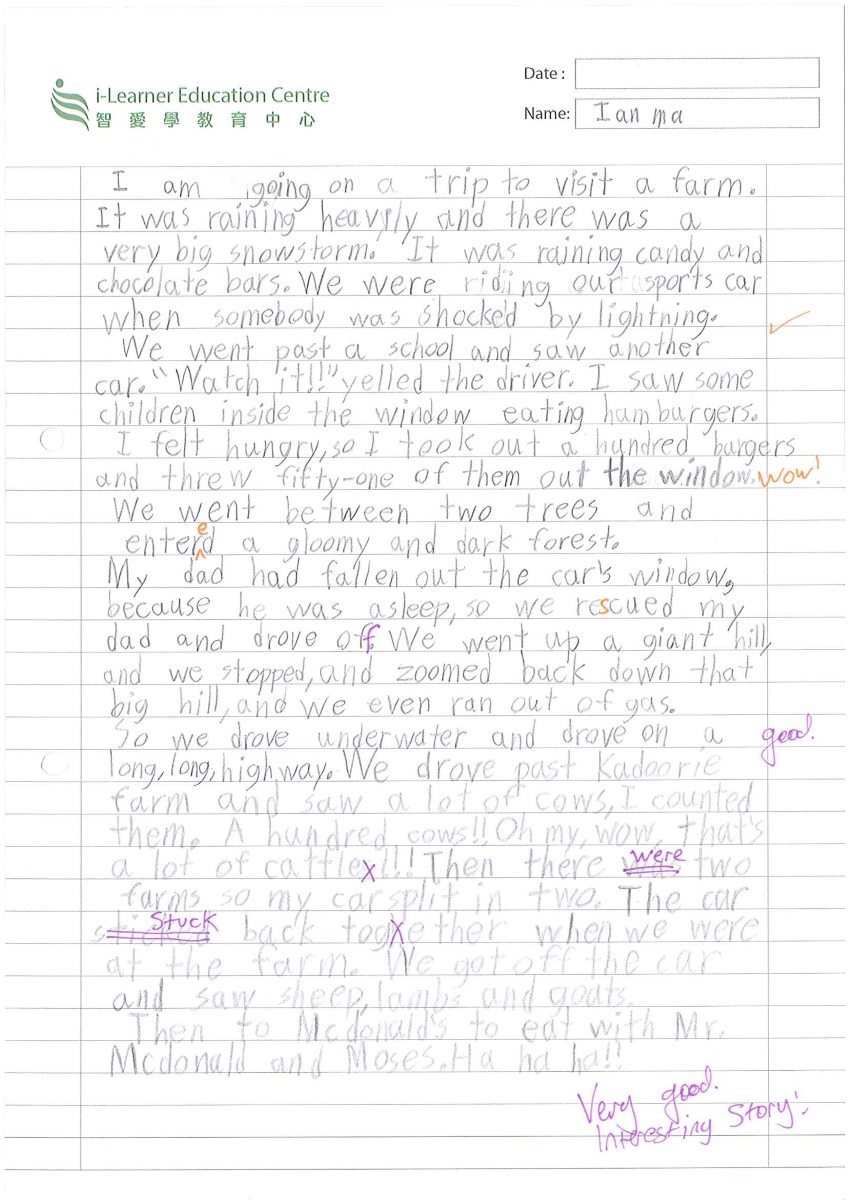 i-Learner Education Centre
智愛學教育中心
Date :
Name: Ian ma
I am going on a trip to visit a farm.
It was raining heavyly and there was a
very big snowstorm. It was raining candy and
chocolate bars. We were riding our sports car
when somebody was shocked by lightning.
We went past a school and saw another
car. "Watch it!!!" yelled the driver. I saw some
children inside the window eating hamburgers.
I felt hungry, so I took out a hundred burgers
and threw fifty-one of them out the window. wow!
We went between two trees and
entered a gloomy and dark forest.
My dad had fallen out the car's window,
because he was asleep, so we rescued my
dad and drove off. We went up a giant hill,
and we stopped, and zoomed back down that
big hill, and we even ran out of gas.
So we drove underwater and drove on a good.
long, long, highway. We drove past Kadoorie
farm and saw a lot of cows, I counted
them. A hundred cows!! Oh my, wow, that's
a lot of cattle!!! Then there were two
farms so my car split in two. The car
stuck back together when we were
at the farm. We got off the car
and saw sheep, lambs and goats.
Then to Mcdonald's to eat with Mr.
Mcdonald and Moses. Ha ha ha!!
Very good.
Interesting Story!